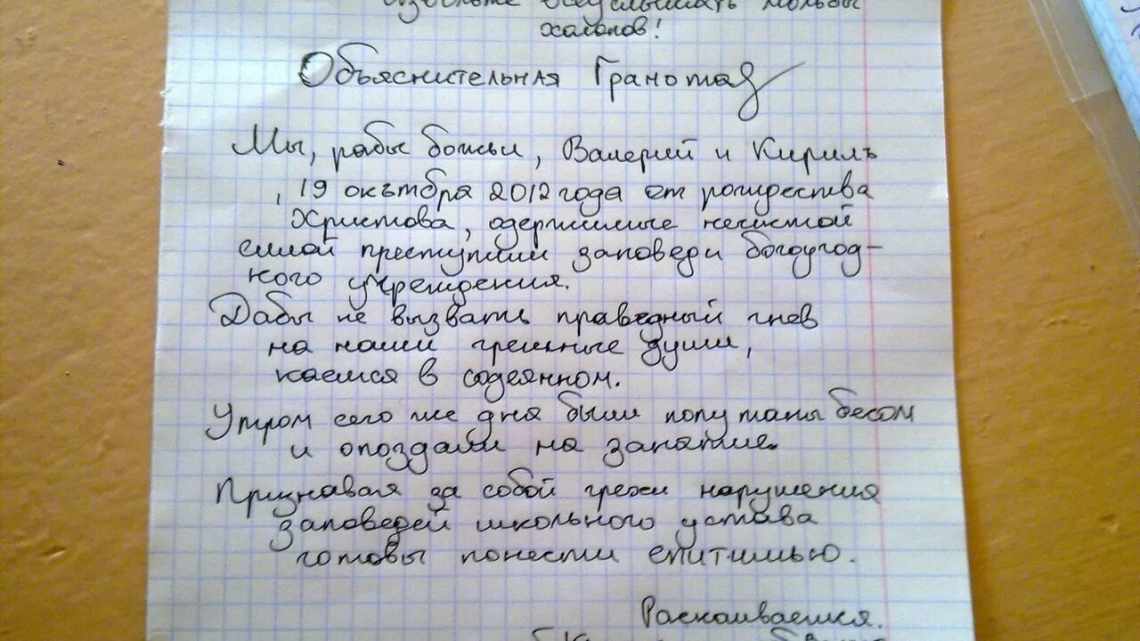 Извольте выслушать мольбы
халопов!
Объяснительная Грамота
Мы, рабы божьи, Валерий и Кирилъ
, 19 октября 2012 года от рождества
Христова, одержимые нечистой
силой преступили заповеди богоугод-
ного учреждения.
Дабы не вызвать праведный гнев
на наши грешные души,
каемся в содеянном.
Утром сего же дня были попутаны бесом
и опоздали на занятие.
Признавая за собой грехи нарушения
заповедей школьного устава
готовы понести епитимью.
Раскаиваемся.